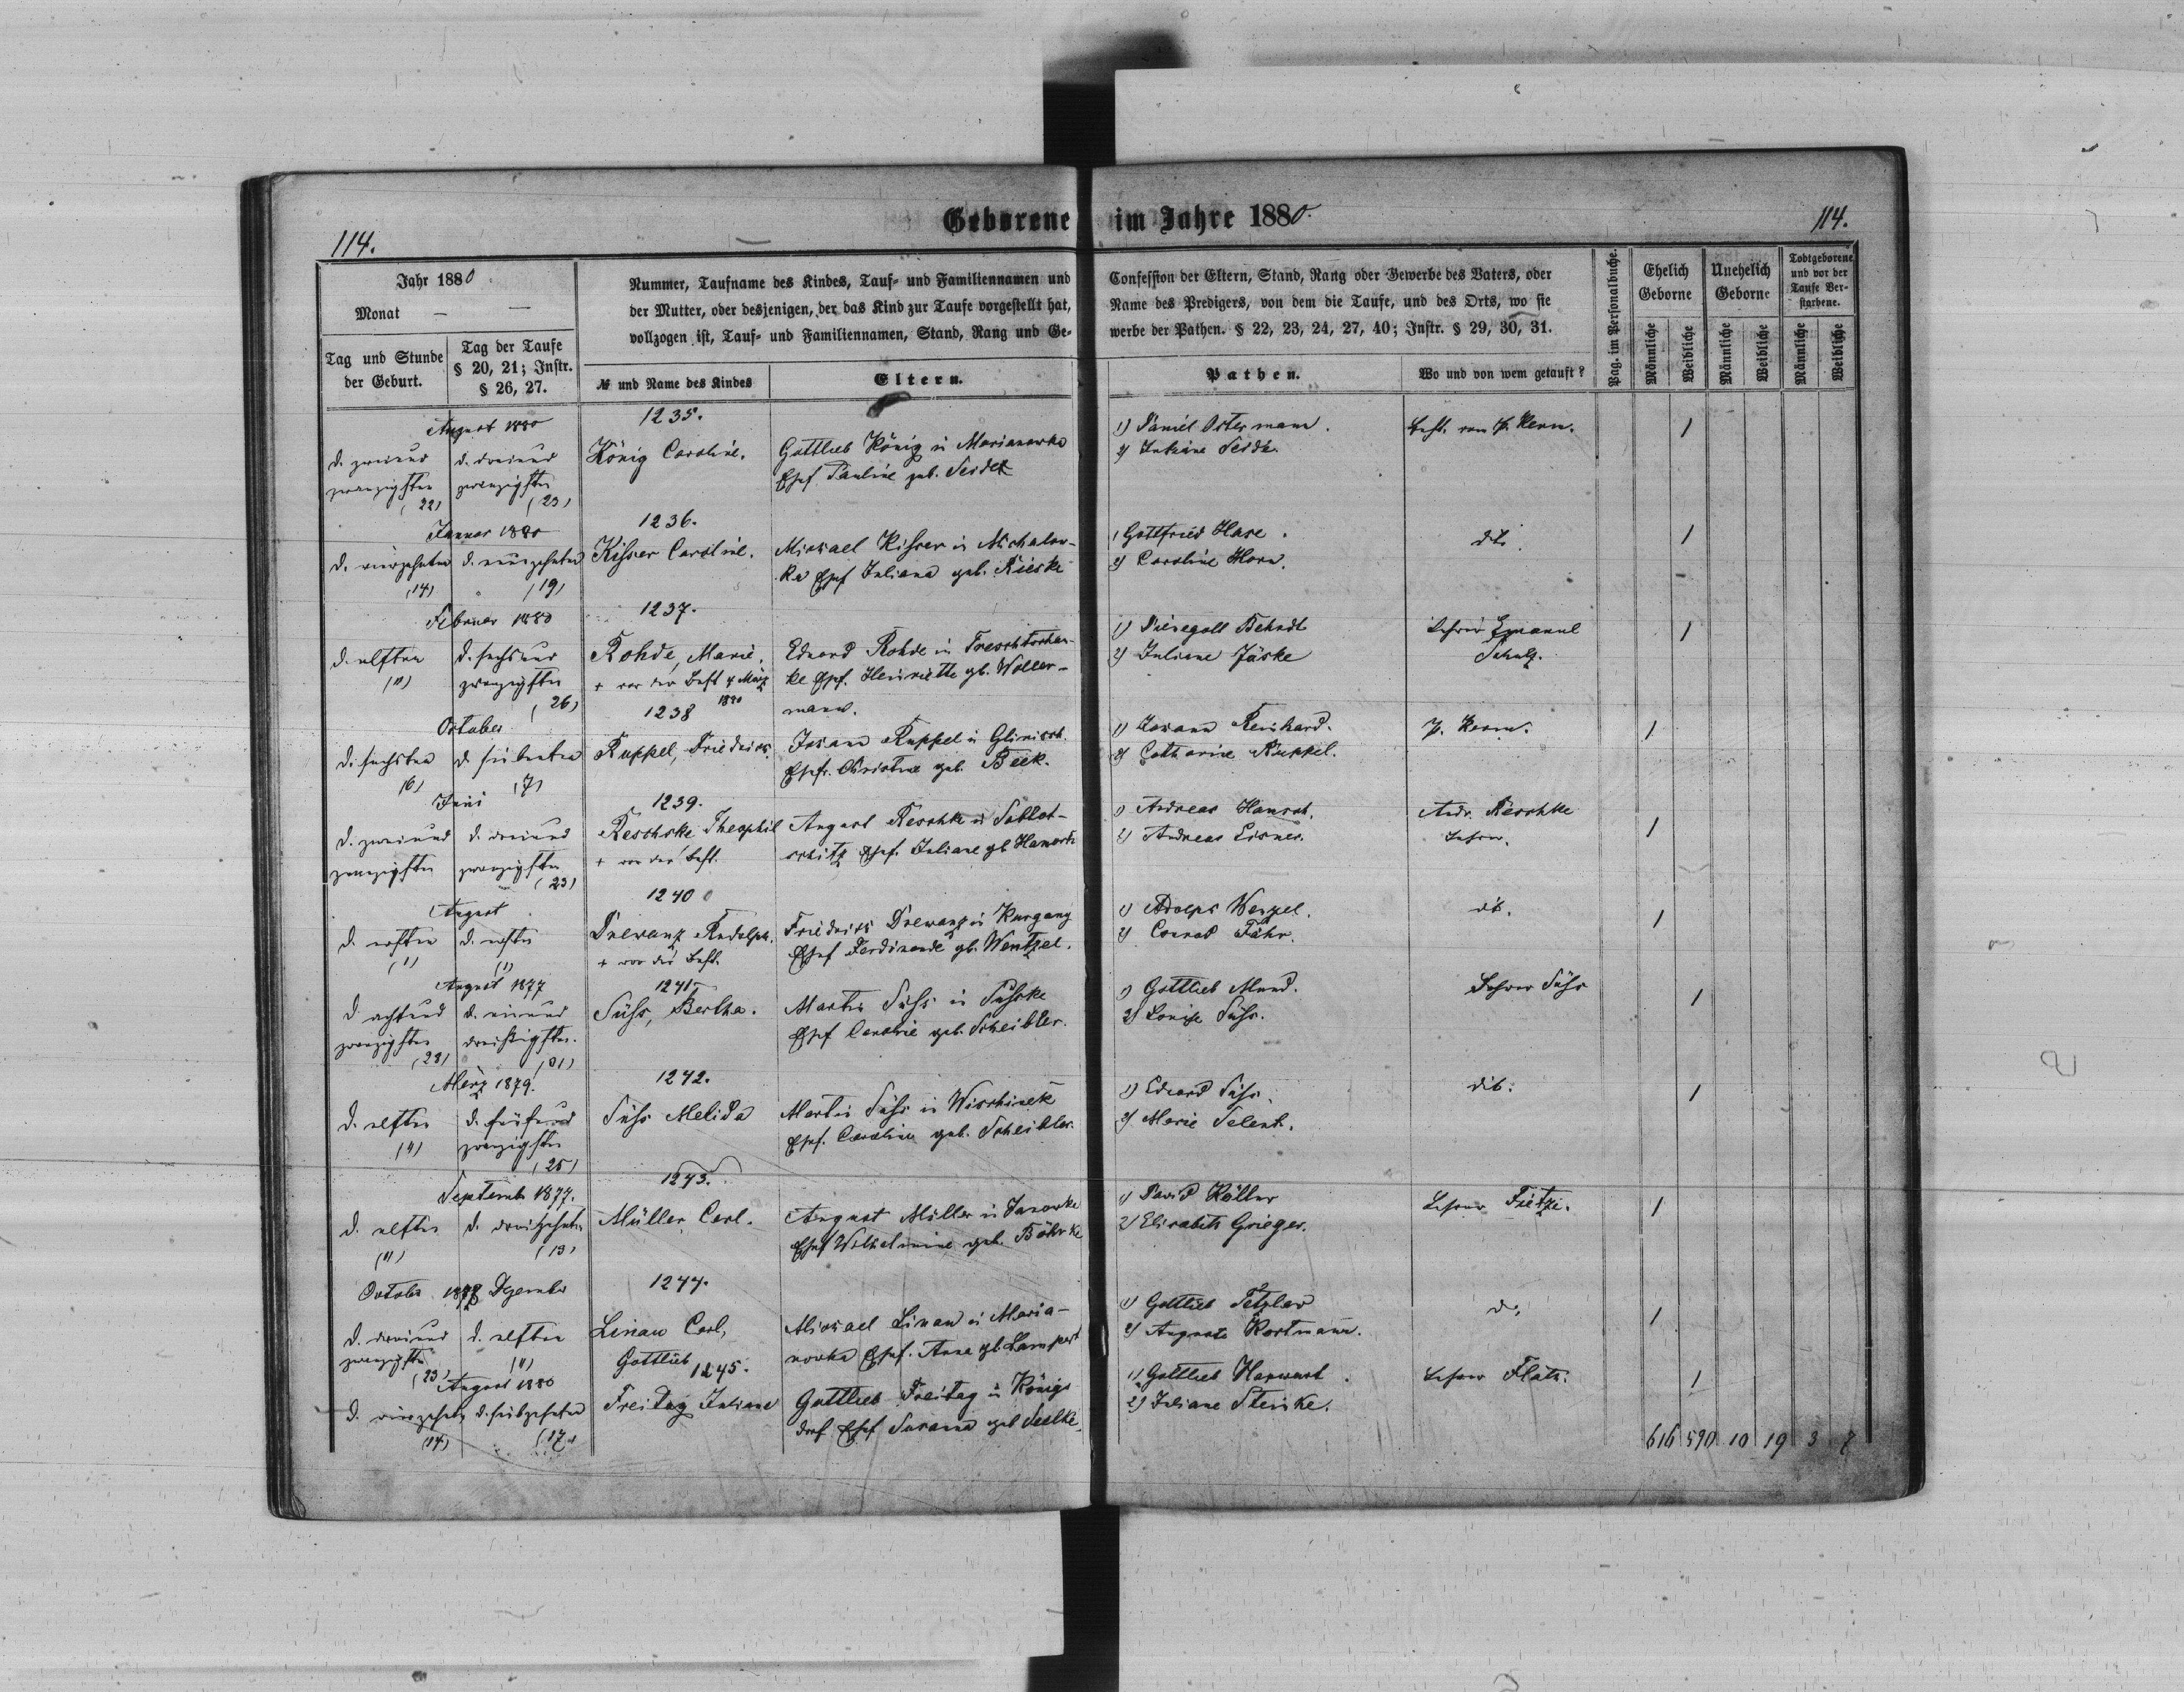 Geborene im Jahre 1880.
114.
114.
Jahr 1880
Monat — —
Tag und Stunde der Geburt.
Tag der Taufe § 20, 21; Instr. § 26, 27.
Nummer, Taufname des Kindes, Tauf- und Familiennamen und
der Mutter, oder desjenigen, der das Kind zur Taufe vorgestellt hat,
vollzogen ist, Tauf- und Familiennamen, Stand, Rang und Ge-
№ und Name des Kindes
Eltern.
Confession der Eltern, Stand, Rang oder Gewerbe des Vaters, oder
Name des Predigers, von dem die Taufe, und des Orts, wo sie
werbe der Pathen. § 22, 23, 24, 27, 40; Instr. § 29, 30, 31.
Pathen.
Wo und von wem getauft?
Pag. im Personalbuche.
Ehelich Geborne
Unehelich Geborne
Todtgeborene und vor der Taufe Ver- storbene.
Männliche
Weibliche
Männliche
Weibliche
Männliche
Weibliche
August 1880
d. zweiund zwanzigsten (22)
d. dreiund zwanzigsten (23)
1235.
König Caroline.
Gottlieb König in Marianowka
Ehef. Pauline geb. Seidel
1) Daniel Ostermann.
2) Juliane Seide.
Best. von P. Kern.
1
Januar 1880
d. vierzehnten (14)
d. neunzehnten (19)
1236.
Kisser Caroline.
Michael Kisser in Michalow-
ka Ehef Juliana geb. Rieske
1) Gottfried Hase.
2) Caroline Horn.
dito.
1
Februar 1880
d. elften (11)
d. sechsund zwanzigsten (26)
1237.
Rohde, Marie.
+ vor der Best 4 März 1880
Eduard Rohde in
ke Ehef. Henriette gb. Woller-
mann.
1) Behrdt
2) Juliane Jäske
Lehrer Emanuel
Schulz.
1
October
d. sechsten (6)
d. siebenten (7)
1238
Ruppel, Friedrich.
Johann Ruppel in
Ehef. Christine geb. Beck.
1) Johann Reinhard.
2) Catharine Ruppel.
P. Kern.
1
Juni
d. zweiund zwanzigsten
d. dreiund zwanzigsten (23)
1239.
Reschske Theophil
+ vor der Best.
August Reschke in Soblot-
schitz Ehef. Juliane gb Hamarth
1) Andreas
2) Andreas Eisner.
Andr. Reschke
Lehrer.
1
August
d. ersten (1)
d. ersten (1)
1240
Drewanz Rudolph.
+ vor der Best.
Friedrich Drewanz in Kurgany
Ehef Ferdinande gb. Wentzel.
1) Adolph Wenzel.
2) Conrad Fähr.
dt.
1
August 1877
d. achtund zwanzigsten (28)
d. einund dreißigsten. (31)
1241
Süss, Bertha.
Martin Süss in
Ehef Caroline geb. Scheibler.
1) Gottlieb Mund.
2) Louise Süss.
Lehrer Süss
1
März 1879.
d. elften (11)
d. fünfund zwanzigsten (25)
1242.
Süss Melida
Martin Süss in Wischinek
Ehef. Caroline geb. Scheibler.
1) Eduard Süss.
2) Marie Selent.
dito.
1
Septemb 1877.
d. elften (11)
d. dreizehnten (13)
1243.
Müller Carl.
August Müller in Janowka
Ehef Wilhelmine geb. Böhrke
1) David Köller
2) Elisabeth Grieger.
Lehrer Tietze.
1
October 1878 Dezember
d. dreiund zwanzigsten (23)
d. elften (11)
1244.
Linaw Carl,
Gottlieb
Michael Linaw in Maria-
nowka Ehef. Anna gb. Lampert
1) Gottlieb Tetzlav
2) Auguste Kortmann.
do.
1
August 1880
d. vierzehnten (14)
d. siebzehnten (17)
1245.
Freitag Juliane
Gottlieb Freitag in Königs
dorf Ehef Susanna geb Seelke.
1) Gottlieb
2) Juliane Steinke.
Lehrer Flatr.
1
616 590 10 19 3 7